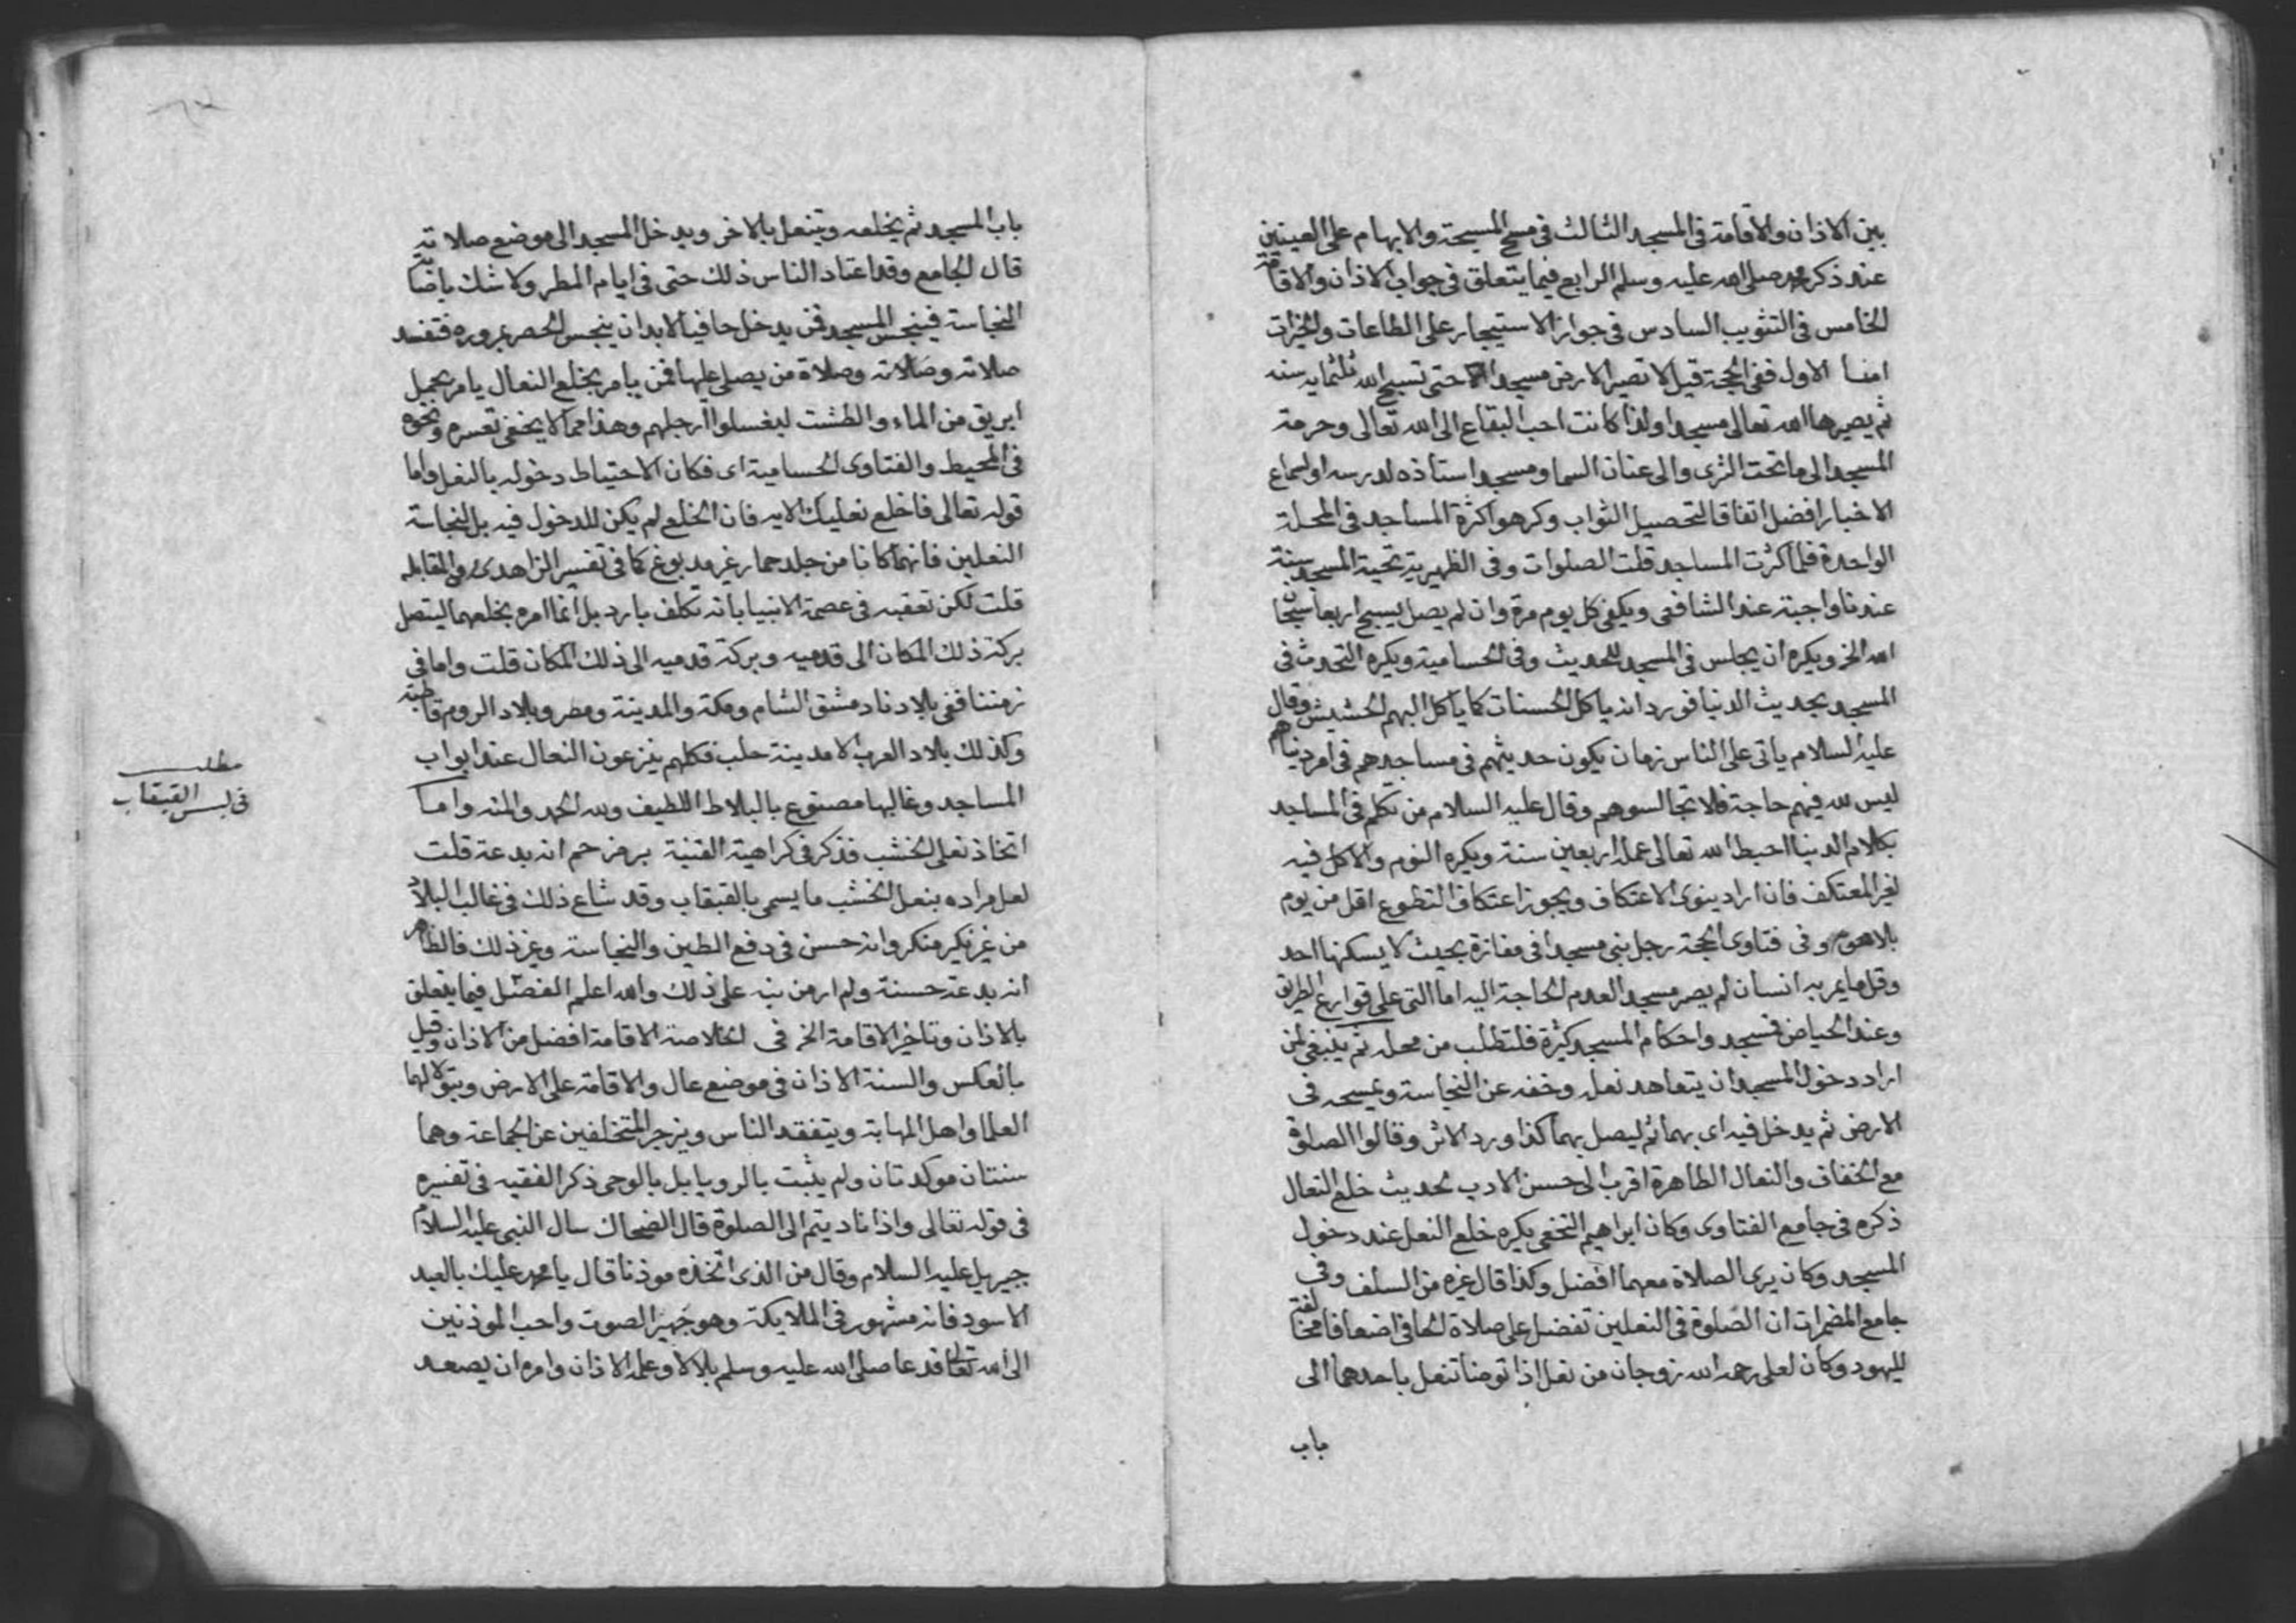 بين الاذان والاقامة فى المسجد الثالث فى مسح المسبحة والابهام على العينين
عند ذكر محمد صلى الله عليه وسلم الرابع فيما يتعلق فى جواب الاذان والاقامة
الخامس فى التثويب السادس فى جواز الاستيجار على الطاعات والخيرات
اما الاول ففى الحجة قيل لا تصير الارض مسجدا حتى تسبح الله ثلثماية سنه
ثم يصيرها الله تعالى مسجدا ولذا كانت احب البقاع الى الله تعالى وحرمة
المسجد الى ما تحت الثرى والى عنان السما ومسجد استاذه لدرسه او لسماع
الاخبار افضل اتفاقا لتحصيل الثواب وكرهوا كثرة المساجد فى المحلة
الواحدة فلما كثرت المساجد قلت الصلوات وفى الظهيرية تحية المسجد سنة
عندنا واجبة عند الشافعى ويكفى كل يوم مرة وان لم يصل يسبح اربعا سبحان
الله الخ ويكره ان يجلس فى المسجد للحديث وفى الحسامية ويكره التحدث فى
المسجد بحديث الدنيا فورد انه ياكل الحسنات كما ياكل البهم الحشيش وقال
عليه السلام ياتى على الناس زمان يكون حديثهم فى مساجدهم فى امر دنياهم
ليس لله فيهم حاجة فلا تجالسوهم وقال عليه السلام من تكلم فى المساجد
بكلام الدنيا احبط الله تعالى عمله اربعين سنة ويكره النوم والاكل فيه
لغير المعتكف فان اراد ينوى الاعتكاف ويجوز اعتكاف التطوع اقل من يوم
بلا صوم وفى فتاوى الحجة رجل بنى مسجدا فى مفازة بحيث لا يسكنها احد
وقل ما يمر به انسان لم يصر مسجدا لعدم الحاجة اليه اما التى على قوارع الطريق
وعند الحياض فمسجد واحكام المسجد كثيرة فلتطلب من محله ثم ينبغى لمن
اراد دخول المسجد ان يتعاهد نعله وخفه عن النجاسة ويمسحه فى
الارض ثم يدخل فيه اى بهما ثم ليصل بهما كذا ورد الاثر وقالوا الصلوة
مع الخفاف والنعال الطاهرة اقرب الى حسن الادب لحديث خلع النعال
ذكره فى جامع الفتاوى وكان ابراهيم النخعى يكره خلع النعل عند دخول
المسجد وكان يرى الصلاة معهما افضل وكذا قال غيره من السلف وفى
جامع المضمرات ان الصلوة فى النعلين تفضل على صلاة الحافى اضعافا مخالفة
لليهود وكان لعلى رحمه الله زوجان من نعل اذا توضا تنعل باحدهما الى
باب
باب المسجد ثم يخلعه وتنعل بالاخر ويدخل المسجد الى موضع صلاته
قال الجامع وقد اعتاد الناس ذلك حتى فى ايام المطر ولا شك
النجاسة فينجس المسجد فمن يدخل حافيا لابد ان ينجس الحصر بمروره فتفسد
صلاته وصلاته وصلاة من يصلى عليها فمن يامر بخلع النعال يامر بحمل
ابريق من الماء والطشت ليغسلوا ارجلهم وهذا مما لا يخفى تعسره ونحوه
فى المحيط والفتاوى الحسامية اى فكان الاحتياط دخوله بالنعل واما
قوله تعالى فاخلع نعليك الايه فان الخلع لم يكن للدخول فيه بل لنجاسة
النعلين فانهما كانا من جلد حمار غير مدبوغ كما فى تفسير الزاهدى
قلت لكن تعقبه فى عصمة الانبيا بانه تكلف بارد بل انما امره بخلعهما ليتصل
بركة ذلك المكان الى قدميه وبركة قدميه الى ذلك المكان قلت واما فى
زمننا ففى بلادنا دمشق الشام ومكة والمدينة ومصر وبلاد الروم قاطبة
وكذلك بلاد العرب الا مدينة حلب فكلهم ينزعون النعال عند ابواب
المساجد وغالبها مصنوع بالبلاط اللطيف ولله الحمد والمنه واما
اتخاذ نعلى الخشب فذكر فى كراهية القنية برمز حم انه بدعة قلت
لعل مراده بنعل الخشب ما يسمى بالقبقاب وقد شاع ذلك فى غالب البلاد
من غير نكير منكر وانه حسن فى دفع الطين والنجاسة وغير ذلك فالظاهر
انه بدعة حسنة ولم ار من نبه على ذلك والله اعلم الفصل فيما يتعلق
بالاذان وتاخير الاقامة الخ فى الخلاصة الاقامة افضل من الاذان وقيل
بالعكس والسنة الاذان فى موضع عال والاقامة على الارض ويتولاهما
العلما واهل المهابة ويتفقد الناس ويزجر المتخلفين عن الجماعة وهما
سنتان موكدتان ولم يثبت بالرويا بل بالوحى ذكر الفقيه فى تفسيره
فى قوله تعالى واذا ناديتم الى الصلوة قال الضحاك سال النبى عليه السلام
جبريل عليه السلام وقال من الذى اتخذه موذنا قال يا محمد عليك بالعبد
الاسود فانه مشهور فى الملايكة وهو جهير الصوت واحب الموذنين
الى الله تعالى فدعا صلى الله عليه وسلم بلالا وعلمه الاذان وامره ان يصعد
مطلب
فى لبس القبقاب